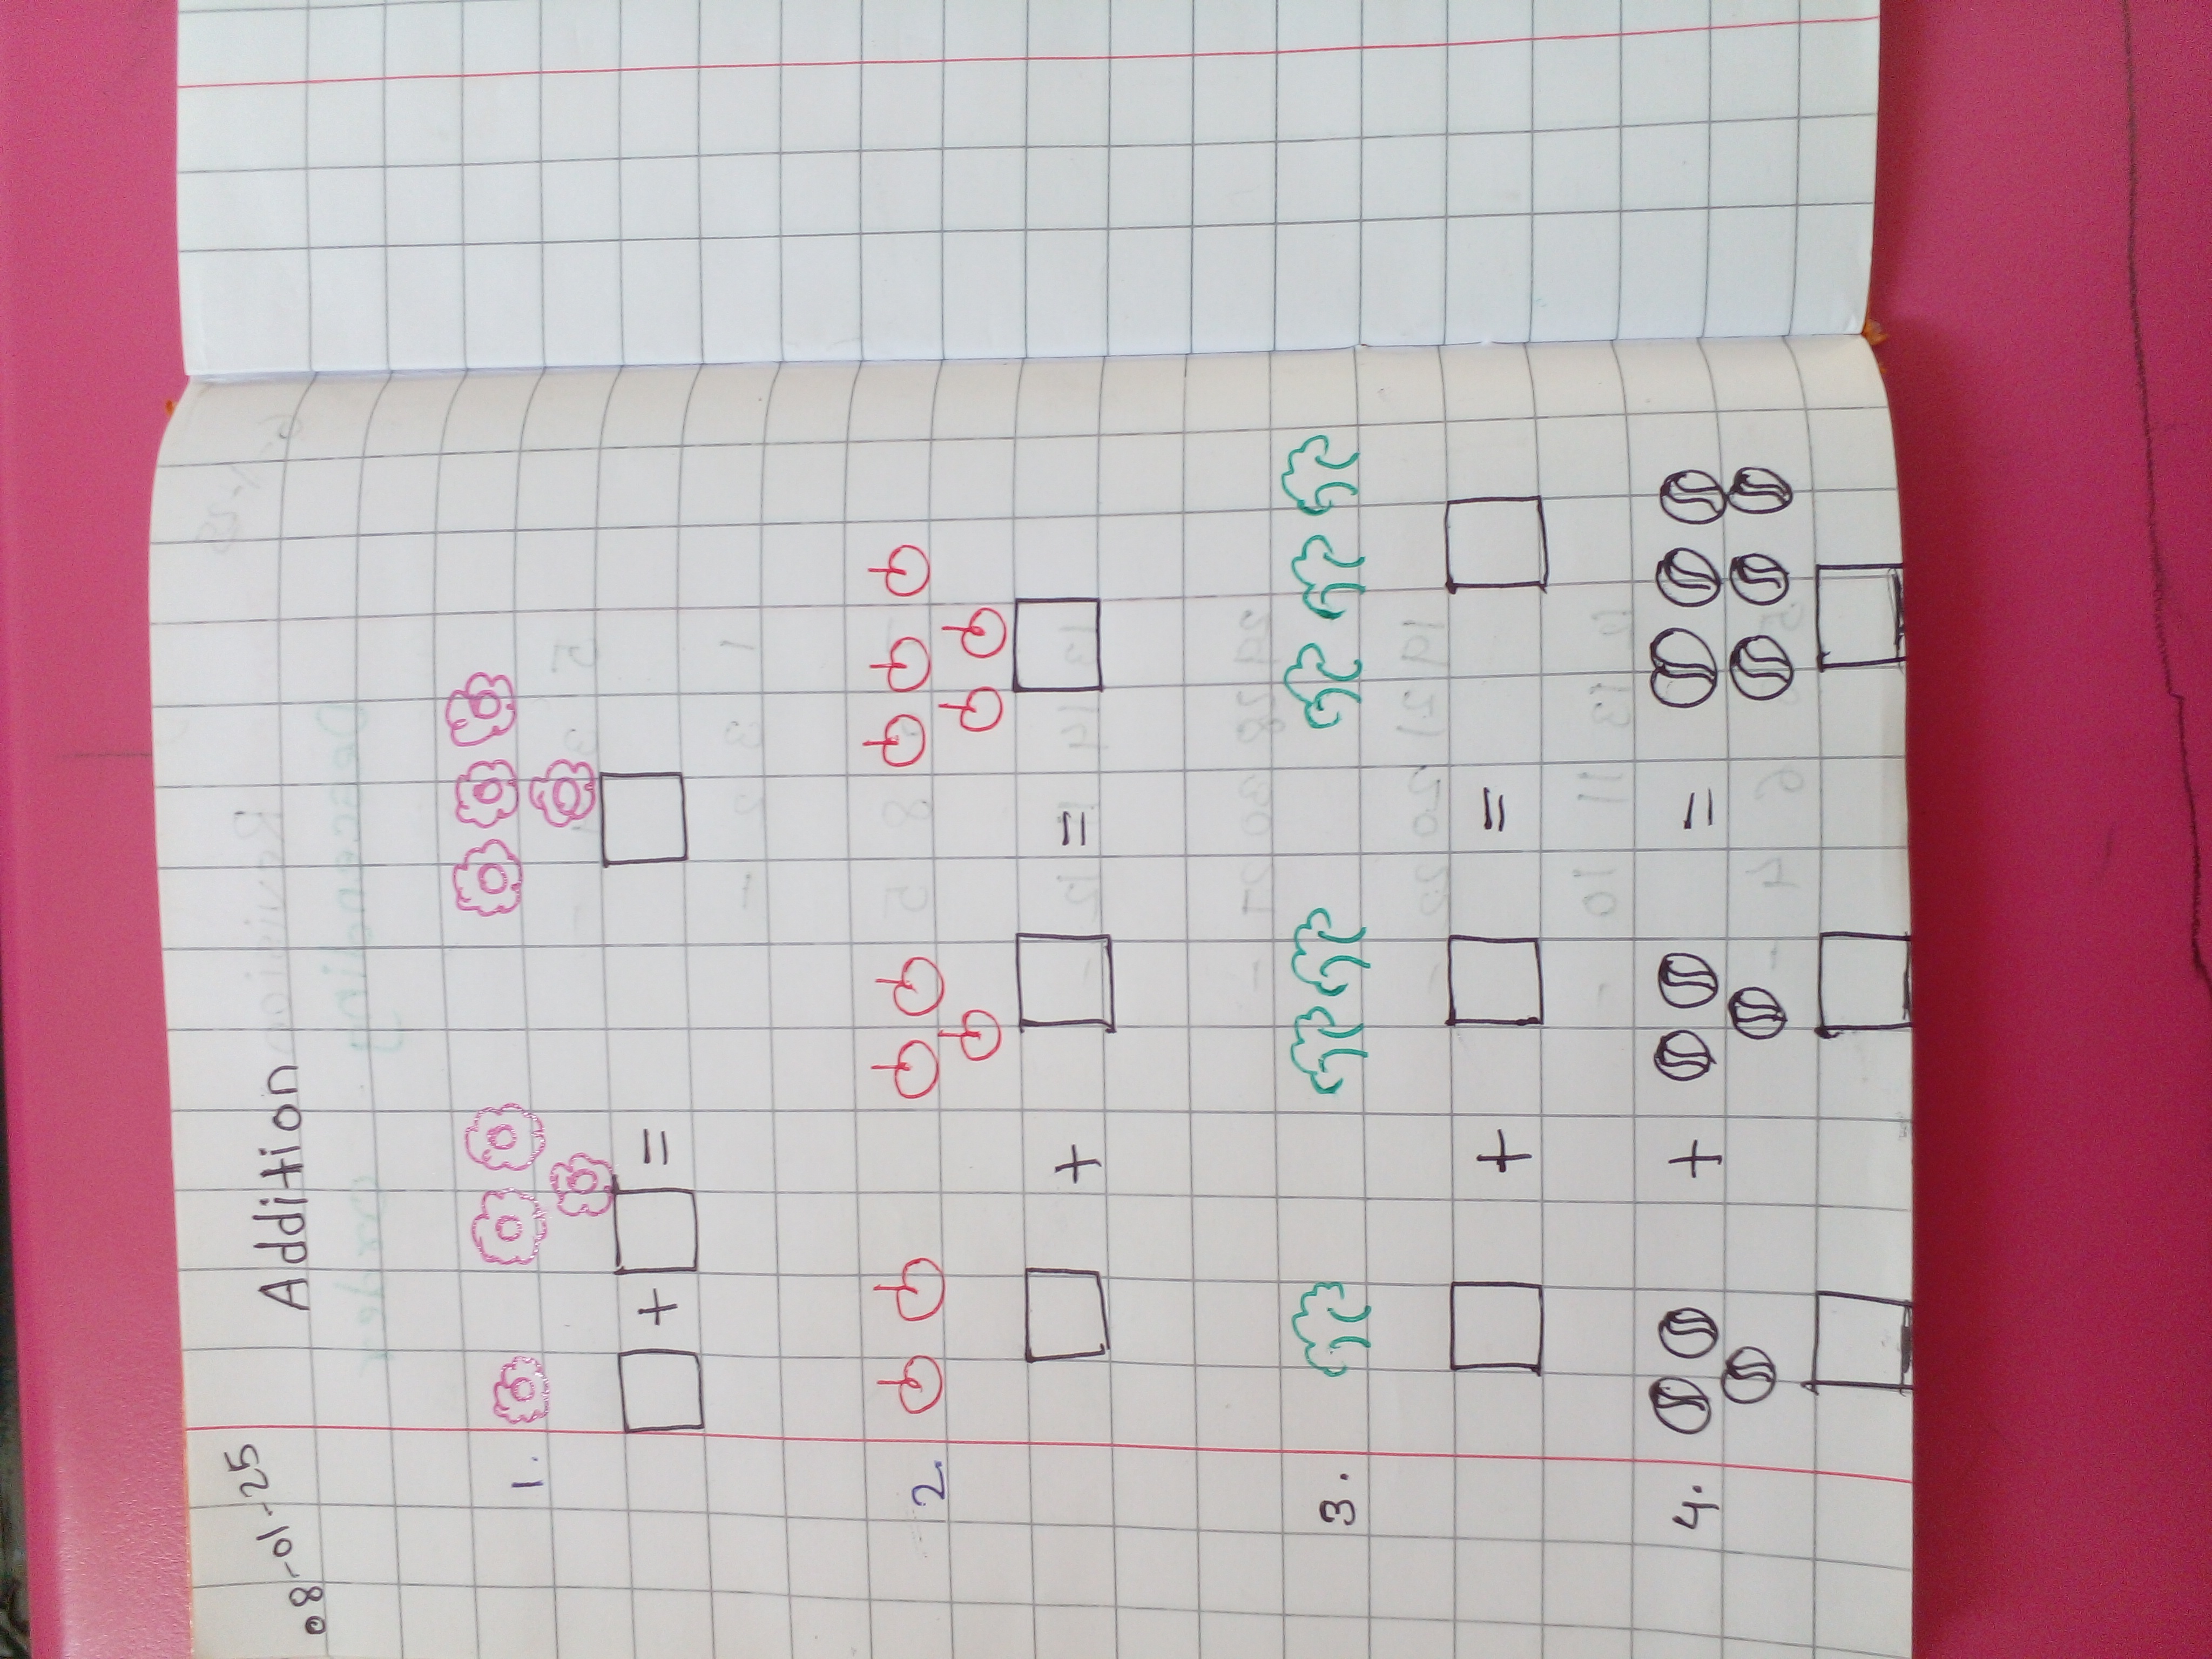 08-01-25
Addition
1.
+ =
2.
+ =
3.
+ =
4.
+ =